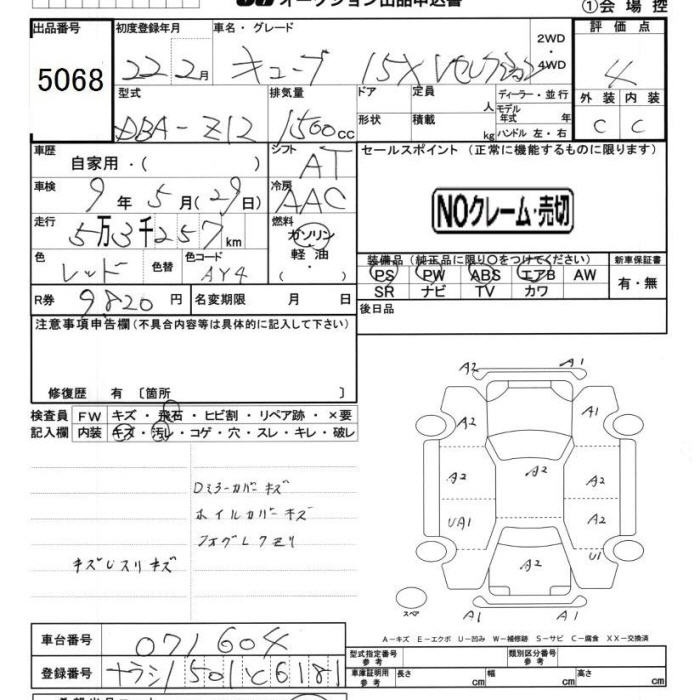 オークション出品申込書 ①会場控
出品番号 初度登録年月 車名・グレード 2WD・4WD 評価点
5068 22 2月 キューブ 15X 4
型式 排気量 ドア 定員 人 ディーラー・並行 外装 内装
DBA-Z12 1500cc 形状 積載 kg モデル年式 年 ハンドル 左・右 C C
車歴 自家用・( ) シフト AT セールスポイント (正常に機能するものに限ります)
車検 9年 5月 (29日) 冷房 AAC NOクレーム・売切
走行 5万3千257km 燃料 ガソリン・軽油・( )
色 レッド 色替 色コード AY4
装備品(純正品に限り○をつけてください) 新車保証書
PS PW ABS エアB AW 有・無
SR ナビ TV カワ
R券 9820円 名変期限 月 日 後日品
注意事項申告欄(不具合内容等は具体的に記入して下さい)
修復歴 有〔箇所 〕
検査員 FW キズ・飛石・ヒビ割・リペア跡・×要
記入欄 内装 キズ・汚レ・コゲ・穴・スレ・キレ・破レ
Dミラーカバーキズ
ホイルカバーキズ
フォグレクモリ
キズUスリキズ
A2 A1
A2 A1
A2 A2 A2
UA1 A2
A2 U1
スペア A1 A1
A-キズ E-エクボ U-凹み W-補修跡 S-サビ C-腐食 XX-交換済
車台番号 071604 型式指定番号 参考 類別区分番号 参考
登録番号 ナラシ1501 c6181 車庫証明用 参考 長さ cm 幅 cm 高さ cm